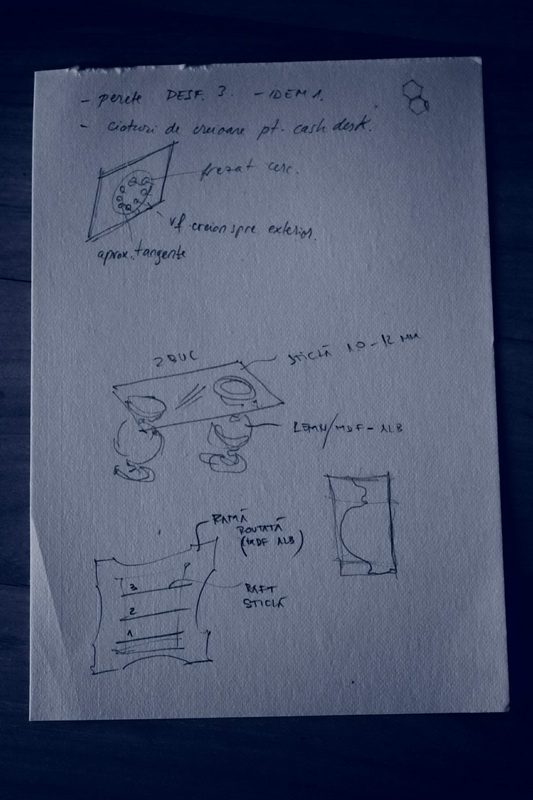 - perete DESF. 3. - IDEM 1.
- cioturi de creioane pt. cash desk.
frezat cerc.
vf. creion spre exterior.
aprox. tangente
2 BUC
STICLĂ 10-12 MM
LEMN/MDF-ALB
RAMĂ
ROUTATĂ
(MDF ALB)
3
RAFT
STICLĂ
2
1